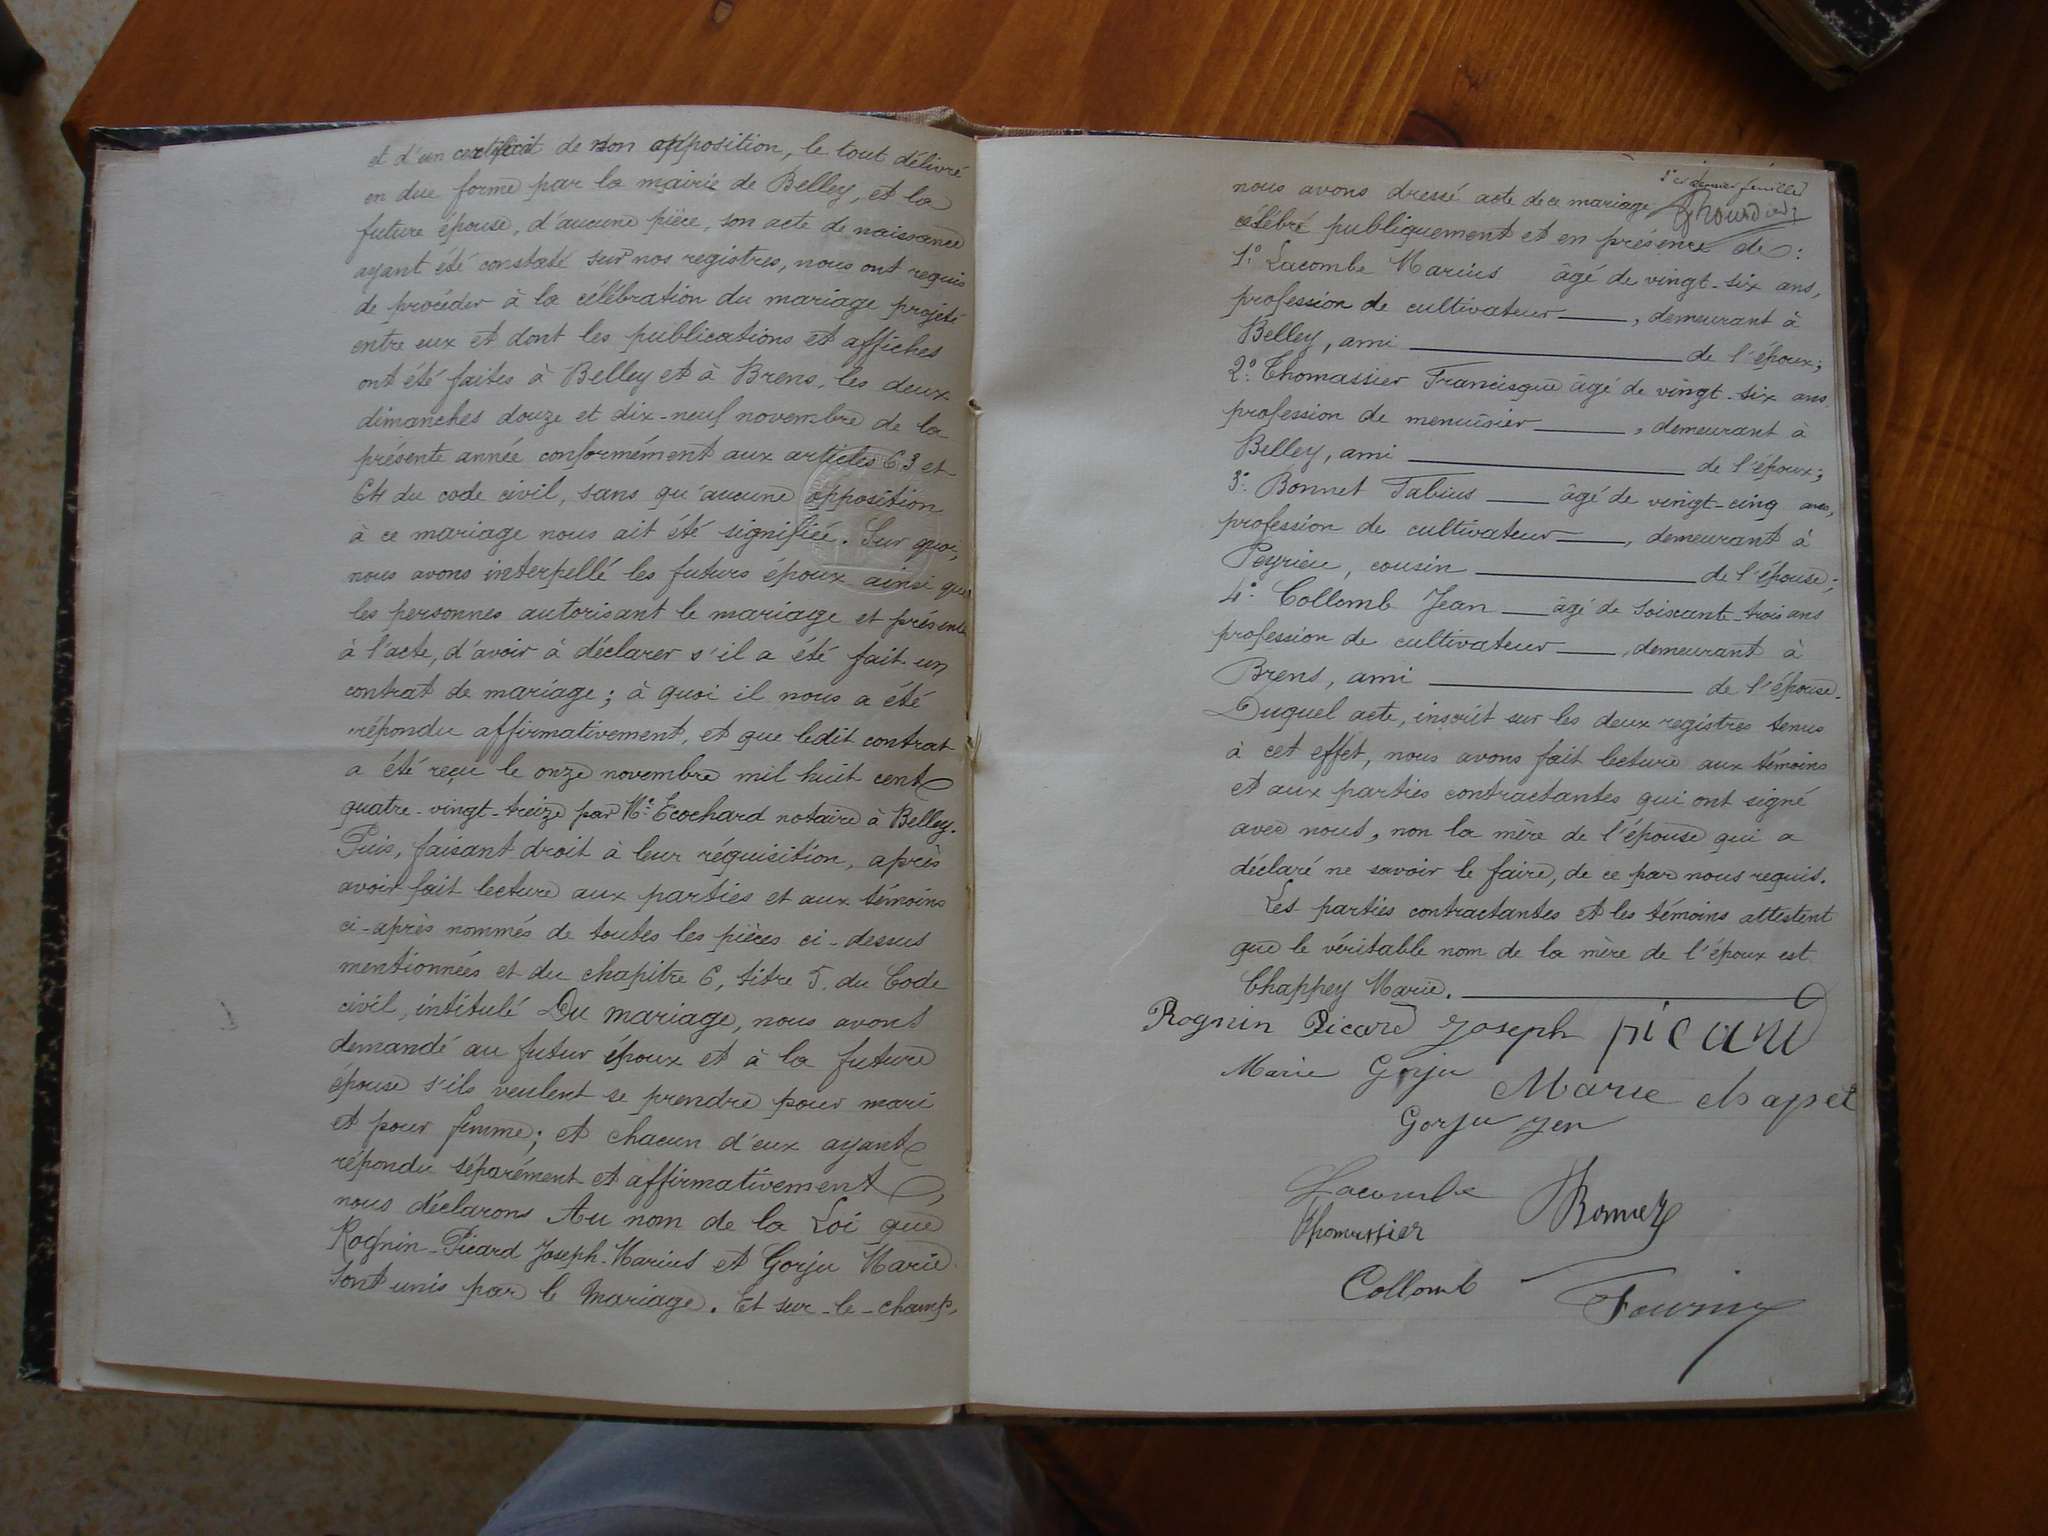 et d'un certificat de non opposition, le tout délivré
en due forme par la mairie de Belley, et la
future épouse, d'aucune pièce, son acte de naissance
ayant été constaté sur nos registres, nous ont requis
de procéder à la célébration du mariage projeté
entre eux et dont les publications et affiches
ont été faites à Belley et à Brens, les deux
dimanches douze et dix-neuf novembre de la
présente année conformément aux articles 63 et
64 du code civil, sans qu'aucune opposition
à ce mariage nous ait été signifiée. Sur quoi,
nous avons interpellé les futurs époux ainsi que
les personnes autorisant le mariage et présentes
à l'acte, d'avoir à déclarer s'il a été fait un
contrat de mariage; à quoi il nous a été
répondu affirmativement, et que ledit contrat
a été reçu le onze novembre mil huit cent
quatre-vingt-treize par Me Ecochard notaire à Belley.
Puis, faisant droit à leur réquisition, après
avoir fait lecture aux parties et aux témoins
ci-après nommés de toutes les pièces ci-dessus
mentionnées et du chapitre 6, titre 5 du Code
civil, intitulé Du mariage, nous avons
demandé au futur époux et à la future
épouse s'ils veulent se prendre pour mari
et pour femme; et chacun d'eux ayant
répondu séparément et affirmativement,
nous déclarons Au nom de la Loi que
Rognin-Picard Joseph-Marius et Gorju Marie
sont unis par le Mariage. Et sur-le-champ,
dernier feuillet
nous avons dressé acte de ce mariage
célébré publiquement et en présence de:
1º. Lacombe Marius âgé de vingt-six ans,
profession de cultivateur, demeurant à
Belley, ami de l'époux;
2º. Thomassier Francisque âgé de vingt-six ans
profession de menuisier, demeurant à
Belley, ami de l'époux;
3º. Bonnet Fabius âgé de vingt-cinq ans,
profession de cultivateur, demeurant à
Peyrieu, cousin de l'épouse;
4º. Collomb Jean âgé de soixante-trois ans
profession de cultivateur, demeurant à
Brens, ami de l'épouse.
Duquel acte, inscrit sur les deux registres tenus
à cet effet, nous avons fait lecture aux témoins
et aux parties contractantes qui ont signé
avec nous, non la mère de l'épouse qui a
déclaré ne savoir le faire, de ce par nous requis.
Les parties contractantes et les témoins attestent
que le véritable nom de la mère de l'époux est
Chappey Marie.
Rognin Picard Joseph picard
Marie Gorju Marie chapet
Gorju jen
Lacombe Bonnet
Thomassier
Collomb Fournier